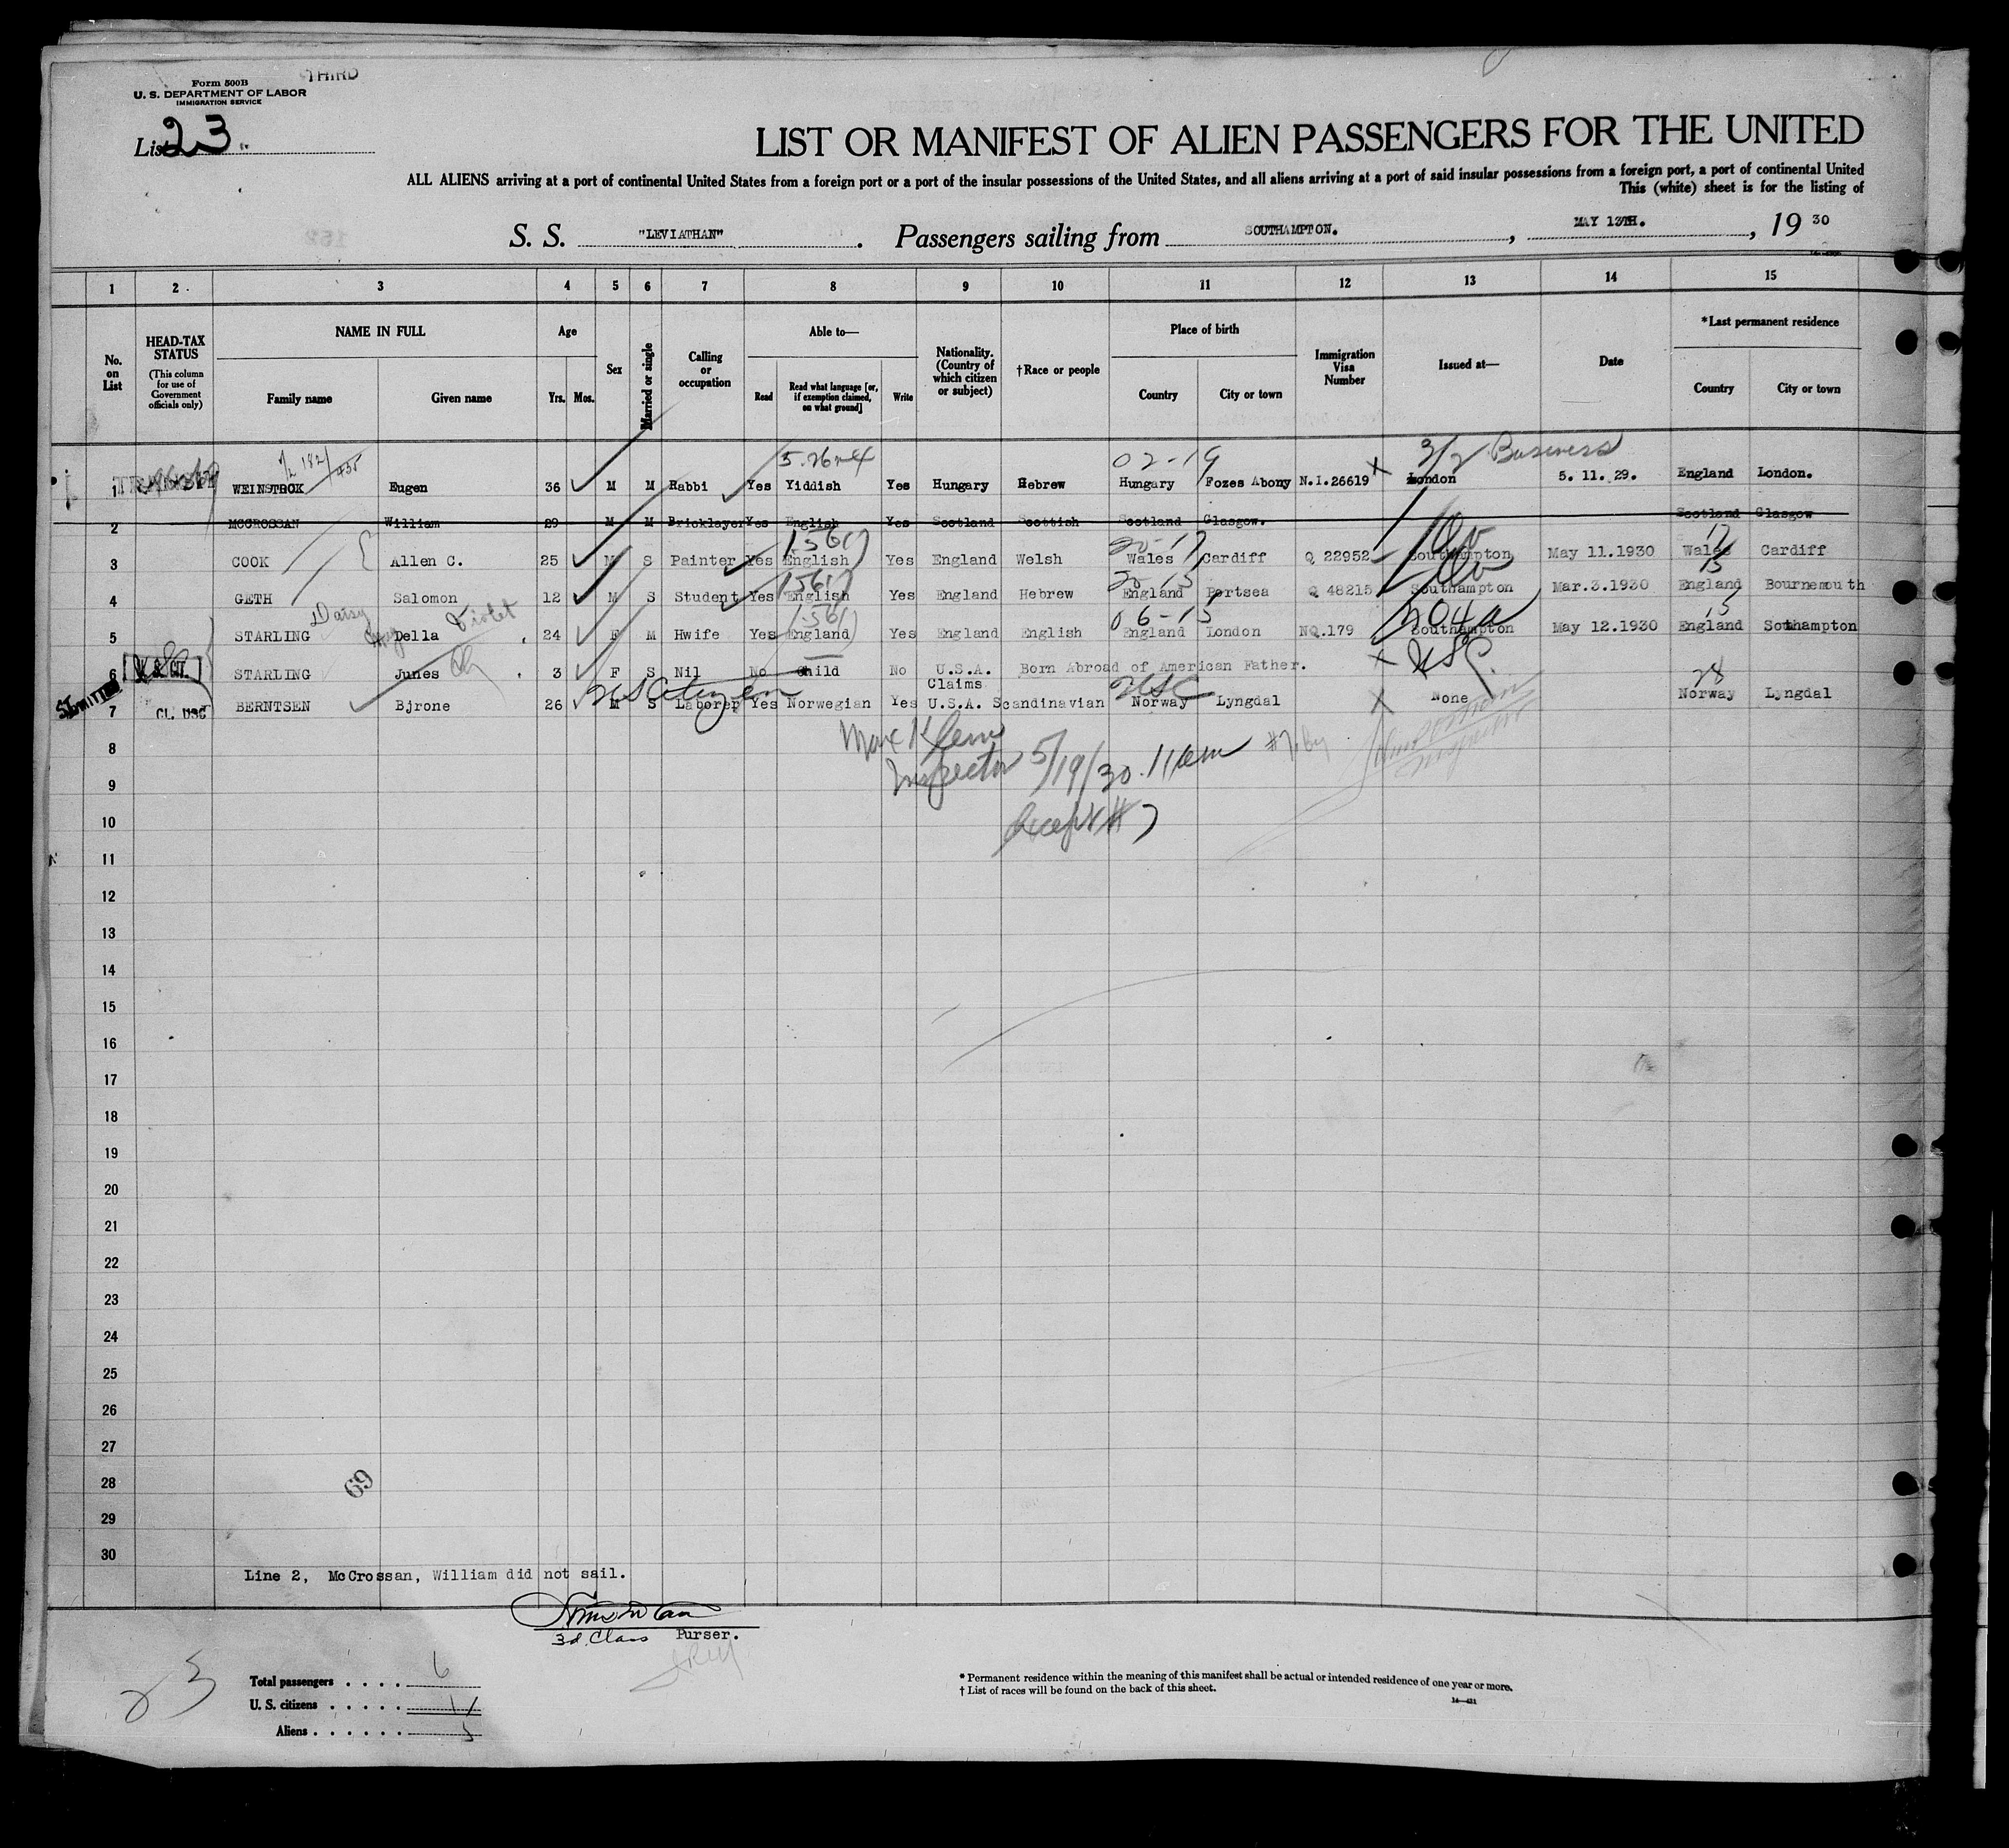 THIRD
Form 500B
U. S. DEPARTMENT OF LABOR
IMMIGRATION SERVICE
List 23
LIST OR MANIFEST OF ALIEN PASSENGERS FOR THE UNITED
ALL ALIENS arriving at a port of continental United States from a foreign port or a port of the insular possessions of the United States, and all aliens arriving at a port of said insular possessions from a foreign port, a port of continental United
This (white) sheet is for the listing of
S. S. "LEVIATHAN" . Passengers sailing from SOUTHAMPTON. , MAY 13TH. , 19 30
1 2 3 4 5 6 7 8 9 10 11 12 13 14 15
No. on List
HEAD-TAX STATUS
(This column for use of Government officials only)
NAME IN FULL
Family name Given name
Age
Yrs. Mos.
Sex
Married or single
Calling or occupation
Able to—
Read
Read what language [or, if exemption claimed, on what ground]
Write
Nationality. (Country of which citizen or subject)
†Race or people
Place of birth
Country City or town
Immigration Visa Number
Issued at—
Date
*Last permanent residence
Country City or town
02-19 3/2 Business
1 WEINSTROK Eugen 36 M M Rabbi Yes Yiddish Yes Hungary Hebrew Hungary Fozes Abony N.I.26619 London 5. 11. 29. England London.
2 MCCROSSAN William 29 M M Bricklayer Yes English Yes Scotland Scottish Scotland Glasgow. Scotland Glasgow
20-17 17
3 COOK Allen C. 25 M S Painter Yes English Yes England Welsh Wales Cardiff Q 22952 Southampton May 11.1930 Wales Cardiff
20-15 15
4 GETH Salomon 12 M S Student Yes English Yes England Hebrew England Portsea Q 48215 Southampton Mar.3.1930 England Bournemouth
Daisy Violet 06-15 404a 15
5 STARLING Della 24 F M Hwife Yes England Yes England English England London NQ.179 Southampton May 12.1930 England Southampton
U.S. CIT. USC
6 STARLING Junes 3 F S Nil No Child No U.S.A. Born Abroad of American Father.
US Citizen Claims USC 28
7 CL. USC BERNTSEN Bjrone 26 M S Laborer Yes Norwegian Yes U.S.A. Scandinavian Norway Lyngdal None Norway Lyngdal
8
Inspector 5/19/30. 11am
9
10
11
12
13
14
15
16
17
18
19
20
21
22
23
24
25
26
27
28
69
29
30
Line 2, McCrossan, William did not sail.
3d. Class Purser.
23
Total passengers . . . . 6
U. S. citizens . . . . . 1
Aliens . . . . . . 5
* Permanent residence within the meaning of this manifest shall be actual or intended residence of one year or more.
† List of races will be found on the back of this sheet.